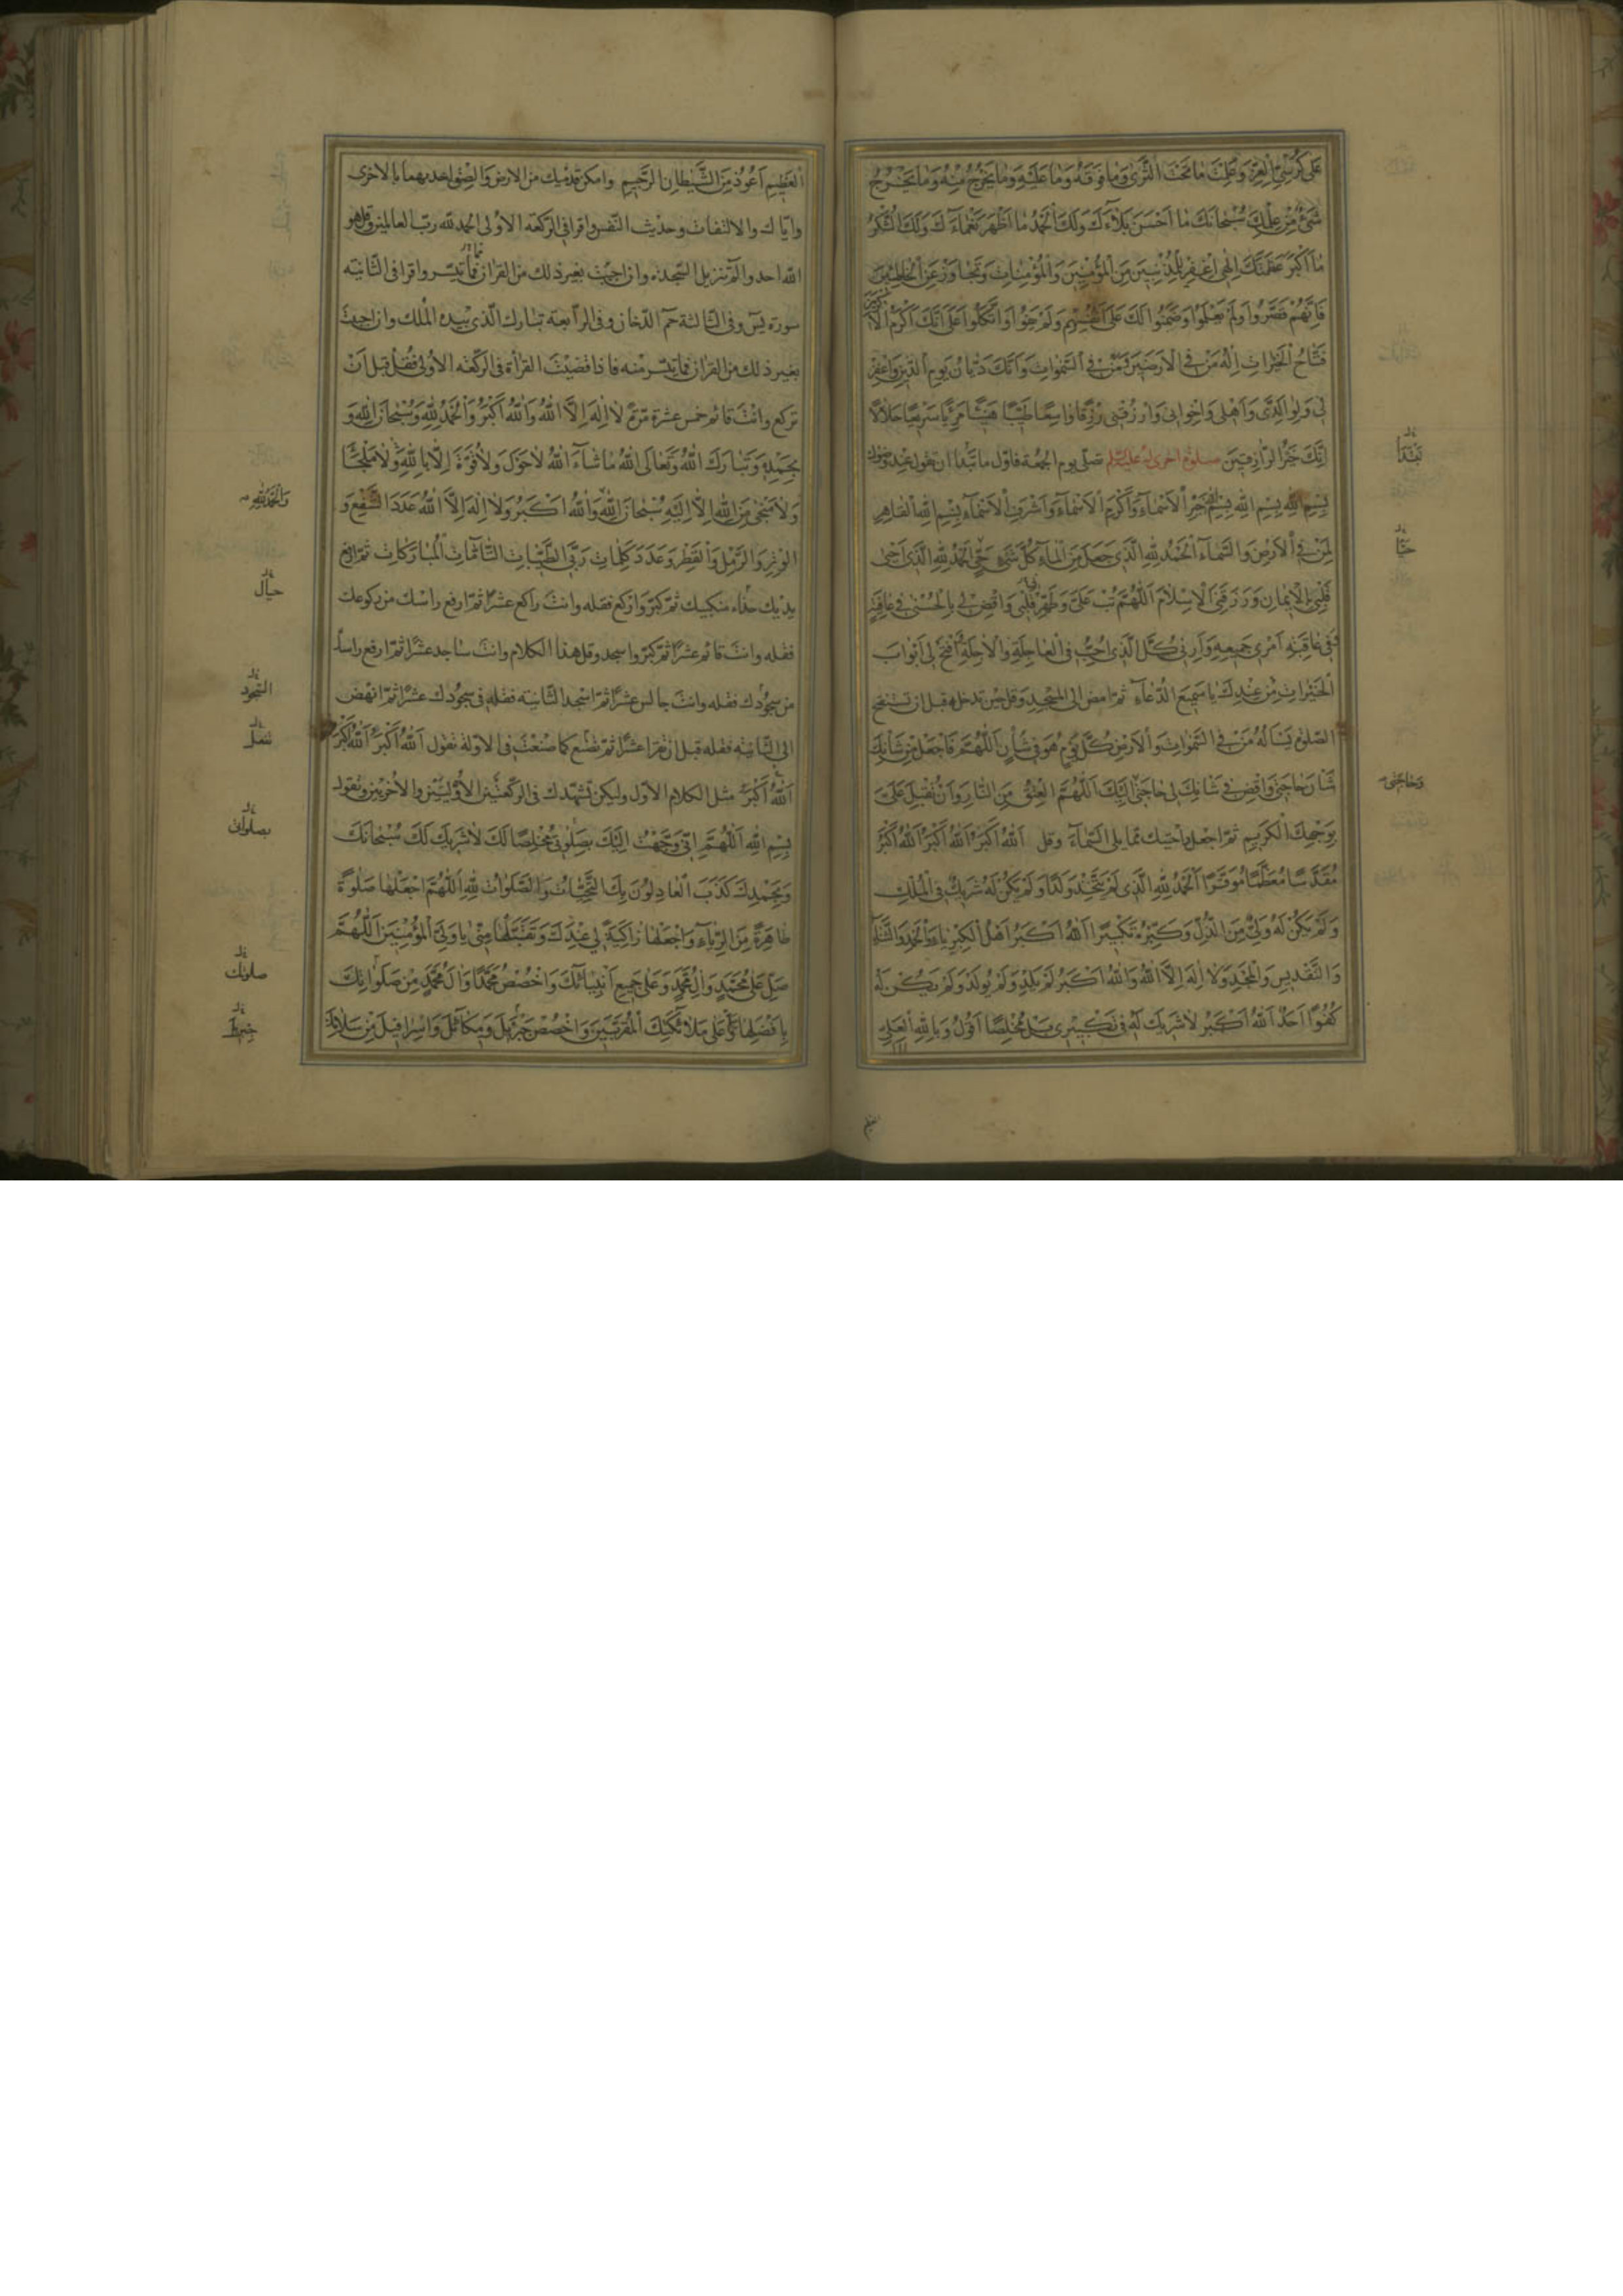 عَلى كُرْسِيِّ الْعِزَّةِ وَعَلِمْتَ مَا تَحْتَ الثَّرىٰ وَمَا فَوْقَهُ وَمَا عَلَيْهِ وَمَا يَخْرُجُ مِنْهُ وَمَا يَخْرُجُ
شَيْءٌ مِنْ عِلْمِكَ سُبْحَانَكَ مَا اَحْسَنَ بَلَاۤءَكَ وَلَكَ الْحَمْدُ مَا اَظْهَرَ نَعْمَاۤءَكَ وَلَكَ الشُّكْرُ
مَا اَكْبَرَ عَظَمَتَكَ اِلٰهِي اغْفِرْ لِلْمُذْنِبِينَ مِنَ الْمُؤْمِنِينَ وَالْمُؤْمِنَاتِ وَتَجَاوَزْ عَنِ الْخَاطِئِينَ
فَاِنَّهُمْ قَصَّرُوا وَلَمْ يَعْلَمُوا وَضَمِنُوا لَكَ عَلَى اَنْفُسِهِمْ وَلَمْ يَفُوا وَاتَّكَلُوا عَلَى اَنَّكَ اَكْرَمُ الْاَكْرَمِينَ
فَتَّاحُ الْخَيْرَاتِ اِلٰهُ مَنْ فِي الْاَرَضِينَ وَمَنْ فِي السَّمٰوَاتِ وَاَنَّكَ دَيَّانُ يَوْمِ الدِّينِ وَاغْفِرْ
لِي وَلِوَالِدَيَّ وَاَهْلِي وَاِخْوَانِي وَارْزُقْنِي رِزْقًا وَاسِعًا طَيِّبًا هَنِيۤئًا مَرِيئًا سَرِيعًا حَلَالًا
اِنَّكَ خَيْرُ الرَّازِقِينَ صلوة اخرى له عليه السلم تصلّى يوم الجمعة فاوّل ما تبدأ ان تقول عند وضوئك
تَبْدَأ
بِسْمِ اللهِ بِسْمِ اللهِ بِسْمِ اللهِ خَيْرِ الْاَسْمَاۤءِ وَاَكْرَمِ الْاَسْمَاۤءِ وَاَشْرَفِ الْاَسْمَاۤءِ بِسْمِ اللهِ الْقَاهِرِ
لِمَنْ فِي الْاَرْضِ وَالسَّمَاۤءِ اَلْحَمْدُ لِلّٰهِ الَّذِي جَعَلَ مِنَ الْمَاۤءِ كُلَّ شَيْءٍ حَيٍّ اَلْحَمْدُ لِلّٰهِ الَّذِي اَحْيٰى
حَيًّا
قَلْبِي بِالْاِيمَانِ وَرَزَقَنِي الْاِسْلَامَ اَللّٰهُمَّ تُبْ عَلَيَّ وَطَهِّرْ قَلْبِي وَاقْضِ لِي بِالْحُسْنىٰ فِي عَافِيَةٍ
وَفِي عَاقِبَةِ اَمْرِي جَمِيعِهِ وَاَرِنِي كُلَّ الَّذِي اُحِبُّ فِي الْعَاجِلَةِ وَالْآجِلَةِ اِفْتَحْ لِي اَبْوَابَ
الْخَيْرَاتِ مِنْ عِنْدِكَ يَا سَمِيعَ الدُّعَاۤءِ ثمّ امض الى المسجد وقل حين تدخله قبل ان تستفتح
الصّلوة يَسْاَلُهُ مَنْ فِي السَّمٰوَاتِ وَالْاَرْضِ كُلَّ يَوْمٍ هُوَ فِي شَأْنٍ اَللّٰهُمَّ فَاجْعَلْ مِنْ شَأْنِكَ
شَأْنَ حَاجَتِي وَاقْضِ فِي شَانِكَ لِي حَاجَتِي اِلَيْكَ اَللّٰهُمَّ الْعِتْقُ مِنَ النَّارِ وَاَنْ تُقْبِلَ عَلَيَّ
وَحَاجَتِي
بِوَجْهِكَ الْكَرِيمِ ثمّ اجعل راحتيك ممّا يلى السّماۤء وقل اَللهُ اَكْبَرُ اَللهُ اَكْبَرُ اَللهُ اَكْبَرُ
مُقَدَّسًا مُعَظَّمًا مُوَقَّرًا اَلْحَمْدُ لِلّٰهِ الَّذِي لَمْ يَتَّخِذْ وَلَدًا وَلَمْ يَكُنْ لَهُ شَرِيكٌ فِي الْمُلْكِ
وَلَمْ يَكُنْ لَهُ وَلِيٌّ مِنَ الذُّلِّ وَكَبِّرْهُ تَكْبِيرًا اَللهُ اَكْبَرُ اَهْلُ الْكِبْرِيَاۤءِ وَالْحَمْدِ وَالثَّنَاۤءِ
وَالتَّقْدِيسِ وَالْمَجْدِ وَلَا اِلٰهَ اِلَّا اللهُ وَاللهُ اَكْبَرُ لَمْ يَلِدْ وَلَمْ يُولَدْ وَلَمْ يَكُنْ لَهُ
كُفُوًا اَحَدٌ اَللهُ اَكْبَرُ لَا شَرِيكَ لَهُ فِي تَكْبِيرِي بَلْ مُخْلِصًا اَقُولُ وَبِاللهِ الْعَلِيِّ
العظيم
الْعَظِيمِ اَعُوذُ مِنَ الشَّيْطَانِ الرَّجِيمِ وامكن قدميك من الارض والصق احديهما بالاخرى
وايّاك والالتفات وحديث النّفس واقرا فى الركعة الاولى الحمد لله ربّ العالمين وقل هو
الله احد والۤم تنزيل السّجدة وان احببت بغير ذلك من القرآن فما تيسّر واقرا فى الثّانية
سورة يسۤ وفى الثّالثة حمۤ الدّخان وفى الرّابعة تبارك الّذى بيده الملك وان احببت
بغير ذلك من القرآن فما تيسّر منه فاذا قضيت القراءة فى الركعة الاولى فقل قبل ان
تركع وانت قائم خمس عشرة مرّة لَا اِلٰهَ اِلَّا اللهُ وَاللهُ اَكْبَرُ وَالْحَمْدُ لِلّٰهِ وَسُبْحَانَ اللهِ وَ
بِحَمْدِهِ وَتَبَارَكَ اللهُ وَتَعَالَى اللهُ مَا شَاۤءَ اللهُ لَا حَوْلَ وَلَا قُوَّةَ اِلَّا بِاللهِ وَلَا مَلْجَأَ
وَلَا مَنْجىٰ مِنَ اللهِ اِلَّا اِلَيْهِ سُبْحَانَ اللهِ وَاللهُ اَكْبَرُ وَلَا اِلٰهَ اِلَّا اللهُ عَدَدَ الشَّفْعِ وَ
وَالْحَمْدُ لِلّٰهِ
الْوَتْرِ وَالرَّمْلِ وَالْقَطْرِ وَعَدَدَ كَلِمَاتِ رَبِّي الطَّيِّبَاتِ التَّاۤمَّاتِ الْمُبَارَكَاتِ ثمّ ارفع
يديك حذاء منكبيك ثمّ كبّر واركع فقله وانت راكع عشرًا ثمّ ارفع راسك من ركوعك
حيال
فقله وانت قائم عشرًا ثمّ كبّر واسجد وقل هذا الكلام وانت ساجد عشرًا ثمّ ارفع راسك
من سجودك فقله وانت جالس عشرًا ثمّ اسجد الثّانية فقله فى سجودك عشرًا ثمّ انهض
السّجود
الى الثّانية فقله قبل ان تقرا عشرًا ثمّ تصنع كما صنعت فى الاولة تقول اَللهُ اَكْبَرُ اَللهُ اَكْبَرُ
تفعل
اَللهُ اَكْبَرُ مثل الكلام الاوّل وليكن تشهّدك فى الركعتين الاوليين والاخريين وتقول
بِسْمِ اللهِ اَللّٰهُمَّ اِنِّي وَجَّهْتُ اِلَيْكَ بِصَلٰوتِي مُخْلِصًا لَكَ لَا شَرِيكَ لَكَ سُبْحَانَكَ
بصلواتى
وَبِحَمْدِكَ كَذَبَ الْعَادِلُونَ بِكَ التَّحِيَّاتُ وَالصَّلَوَاتُ لِلّٰهِ اَللّٰهُمَّ اجْعَلْهَا صَلٰوةً
طَاهِرَةً مِنَ الرِّيَاۤءِ وَاجْعَلْهَا زَاكِيَةً لِي عِنْدَكَ وَتَقَبَّلْهَا مِنِّي يَا وَلِيَّ الْمُؤْمِنِينَ اَللّٰهُمَّ
صَلِّ عَلىٰ مُحَمَّدٍ وَآلِ مُحَمَّدٍ وَعَلىٰ جَمِيعِ اَنْبِيَاۤئِكَ وَاخْصُصْ مُحَمَّدًا وَآلَ مُحَمَّدٍ مِنْ صَلَوَاتِكَ
صلوتك
بِاَفْضَلِهَا وَعَلىٰ مَلَاۤئِكَتِكَ الْمُقَرَّبِينَ وَاخْصُصْ جَبْرَئِيلَ وَمِيكَاۤئِيلَ وَاِسْرَافِيلَ مِنْ سَلَامِكَ